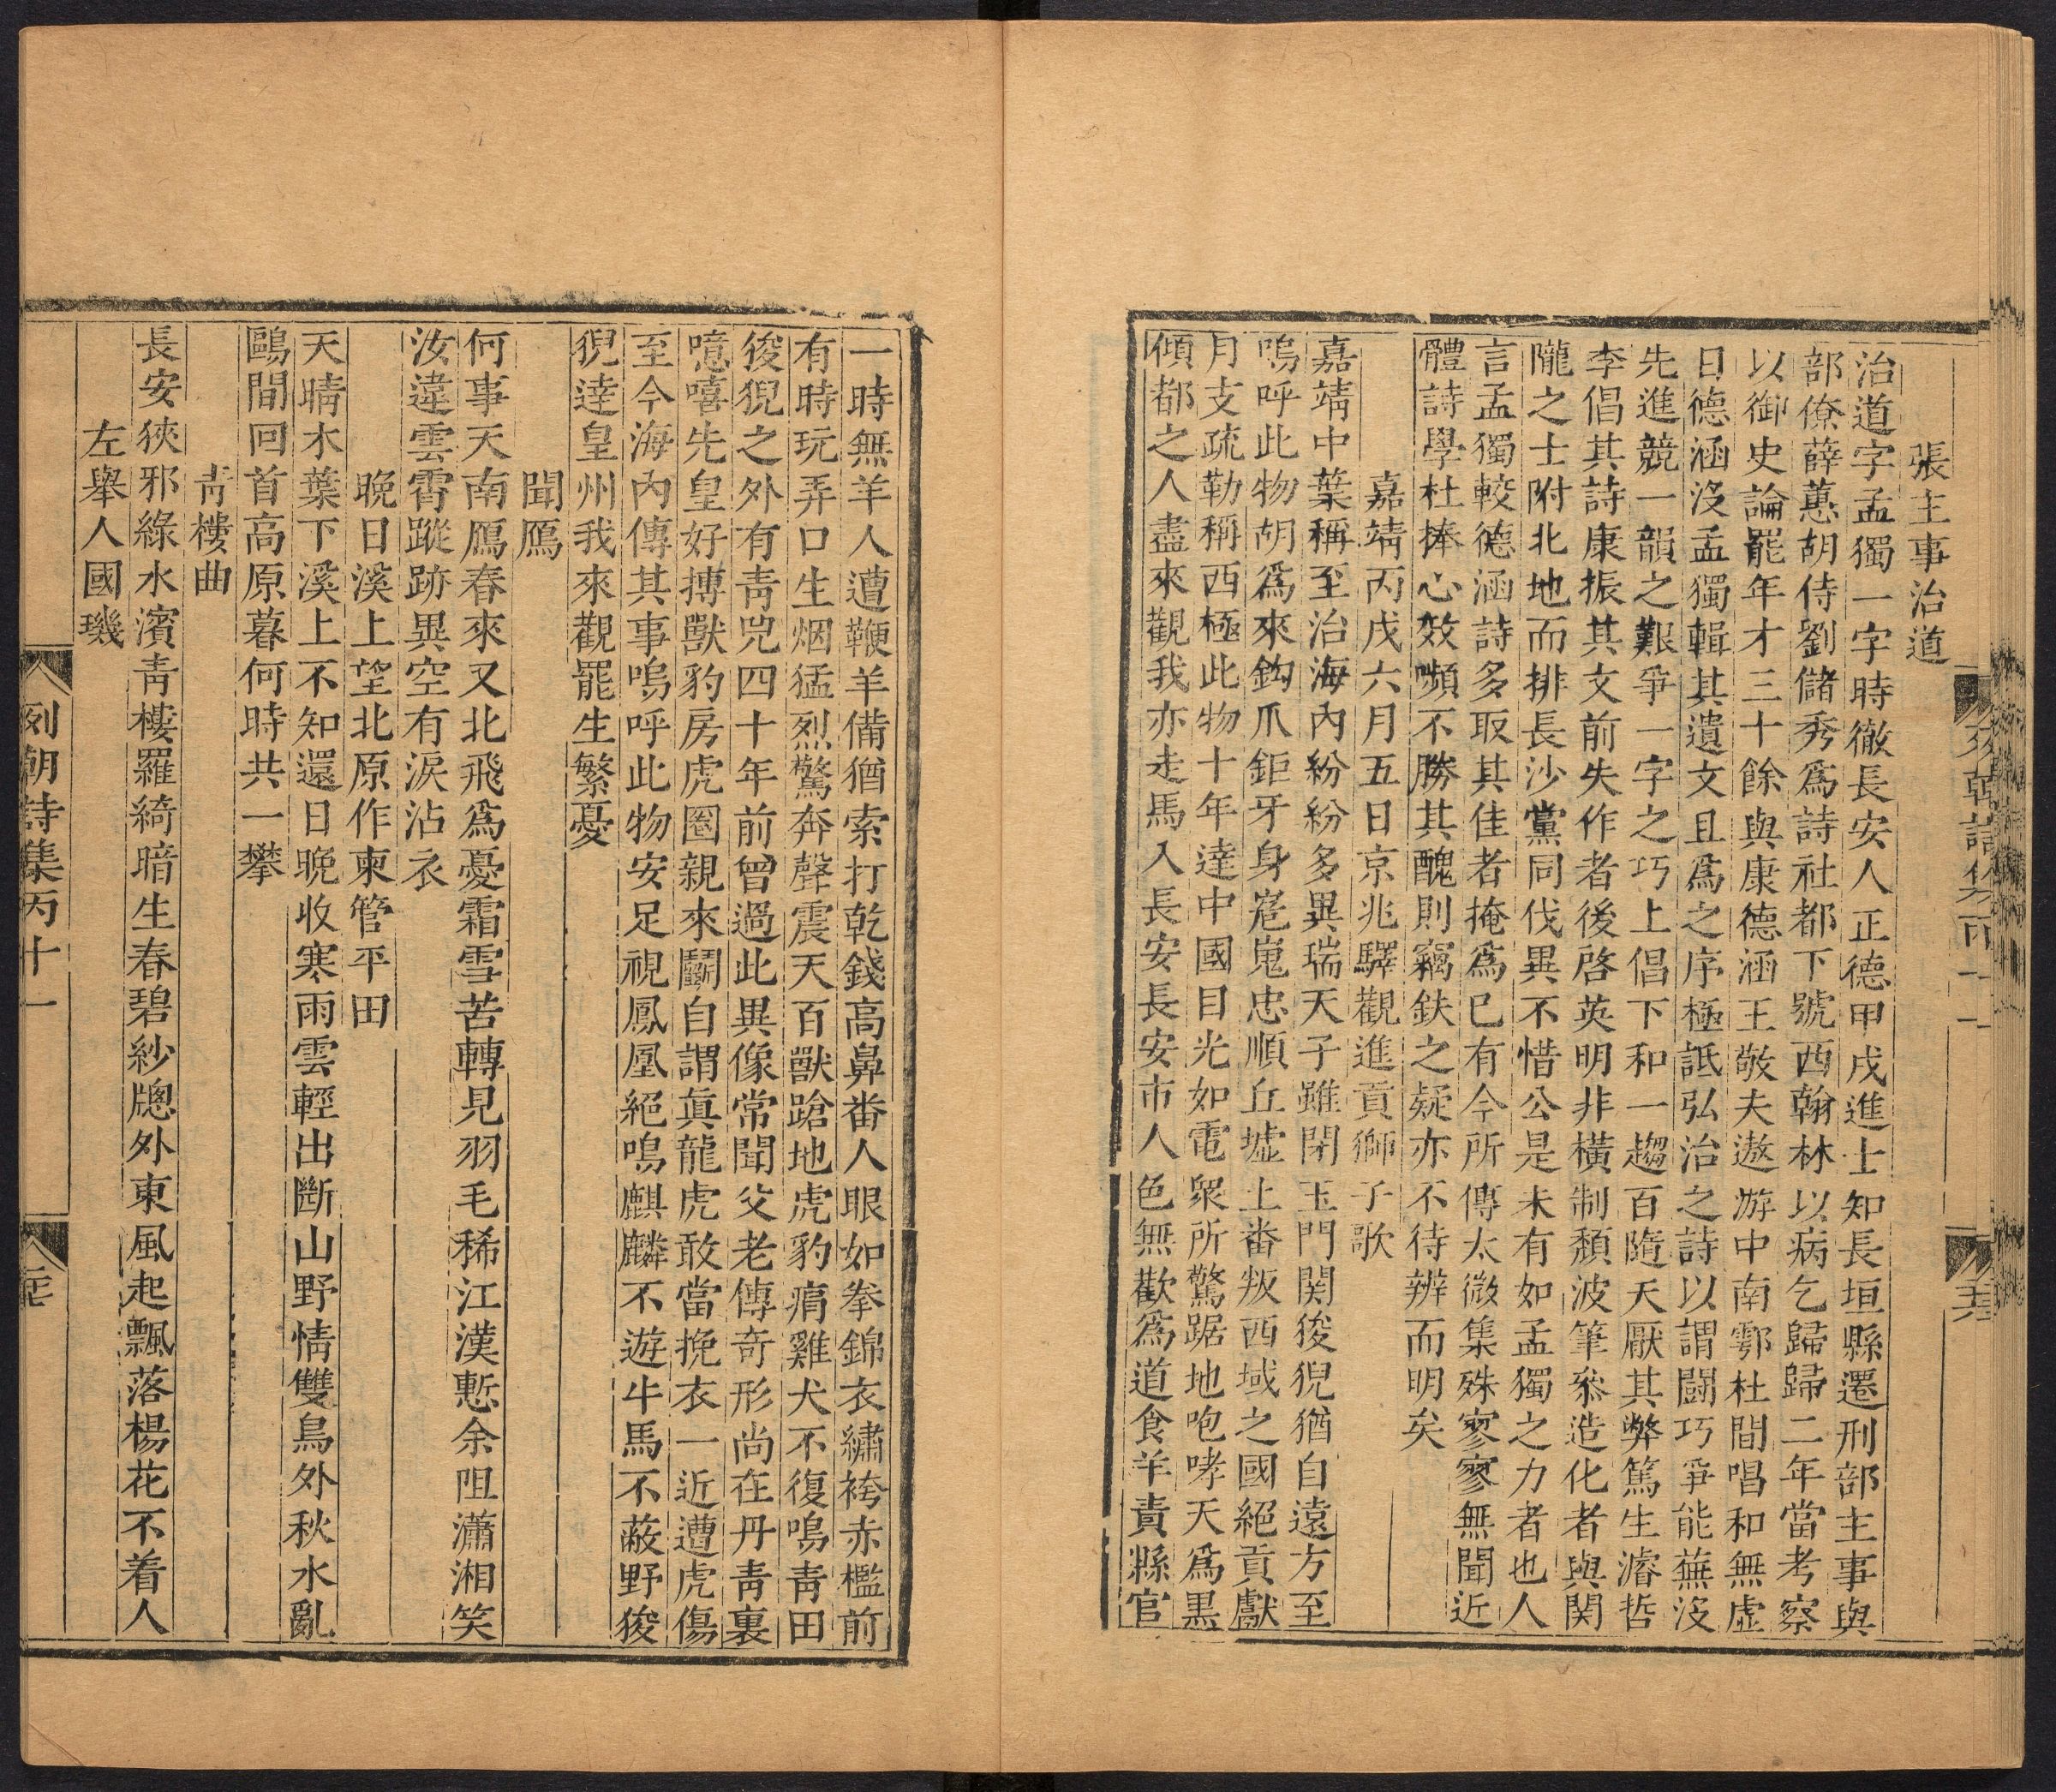 張主事治道
治道字孟獨一字時徹長安人正德甲戌進士知長垣縣遷刑部主事與
部僚薛蕙胡侍劉儲秀爲詩社都下號西翰林以病乞歸歸二年當考察
以御史論罷年才三十餘與康德涵王敬夫遨游中南鄠杜間唱和無虛
日德涵沒孟獨輯其遺文且爲之序極詆弘治之詩以謂鬪巧爭能蕪沒
先進競一韻之艱爭一字之巧上倡下和一趨百隨天厭其弊篤生濬哲
李倡其詩康振其文前失作者後啓英明非橫制頹波筆叅造化者與関
隴之士附北地而排長沙黨同伐異不惜公是未有如孟獨之力者也人
言孟獨較德涵詩多取其佳者掩爲巳有今所傳太微集殊寥寥無聞近
體詩學杜捧心效嚬不勝其醜則竊鈇之疑亦不待辨而明矣
嘉靖丙戌六月五日京兆驛觀進貢獅子歌
嘉靖中葉稱至治海內紛紛多異瑞天子雖閉玉門関狻猊猶自遠方至
嗚呼此物胡爲來鈎爪鉅牙身嵬嵬忠順丘墟土番叛西域之國絕貢獻
月支疏勒稱西極此物十年達中國目光如電衆所驚踞地咆哮天爲黒
傾都之人盡來觀我亦走馬入長安長安市人色無歡爲道食羊責縣官
一時無羊人遭鞭羊備猶索打乾錢高鼻番人眼如拳錦衣繡袴赤檻前
有時玩弄口生烟猛烈驚奔聲震天百獸蹌地虎豹痟雞犬不復鳴靑田
狻猊之外有靑兕四十年前曾過此異像常聞父老傳奇形尚在丹靑裏
噫嘻先皇好搏獸豹房虎圈親來鬬自謂眞龍虎敢當挽衣一近遭虎傷
至今海內傳其事嗚呼此物安足視鳳凰絕鳴麒麟不遊牛馬不蔽野狻
猊達皇州我來觀罷生繁憂
聞鴈
何事天南鴈春來又北飛爲憂霜雪苦轉見羽毛稀江漢慙余阻瀟湘笑
汝違雲霄蹤跡異空有淚沾衣
晚日溪上望北原作柬管平田
天晴木葉下溪上不知還日晚收寒雨雲輕出斷山野情雙鳥外秋水亂
鷗間回首高原暮何時共一攀
靑樓曲
長安狹邪綠水濱靑樓羅綺暗生春碧紗牕外東風起飄落楊花不着人
左舉人國璣
列朝詩集丙十一